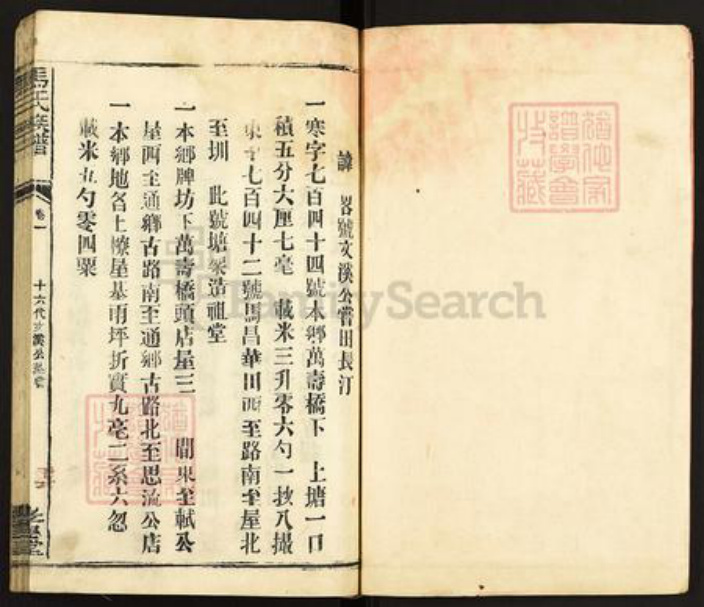 諱 畧號文溪公嘗田長汀
一寒字七百四十四號本鄉萬壽橋下 上塘一口
積五分六厘七毫 載米三升零六勺一抄八撮
東至七百四十二號馬昌華田西至路南至屋北
至圳 此號塘衆造祖堂
一本鄉牌坊下萬壽橋頭店屋三 間東至軾公
屋西至通鄉古路南至通鄉古路北至思流公店
一本鄉地名上寮屋基雨坪折實九毫二系六忽
載米五勺零四粟
馬氏族譜
卷一
十六代文溪公
FamilySearch
譜學會
收藏